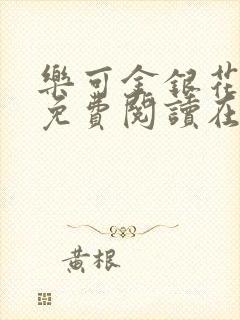 樂可金銀花
免費閱讀在
黃根